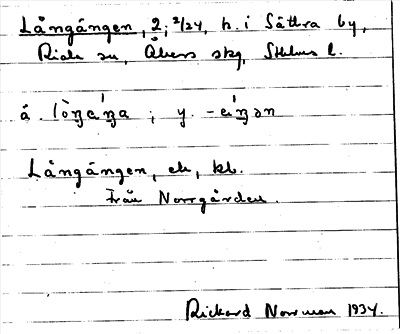 Långängen, 2; 2/24, h. i Sättra by,
Riala sn, Åkers skg, Sthlms l.
Långängen, ek, kl.
Från Norrgården.
Rickard Norman 1934.